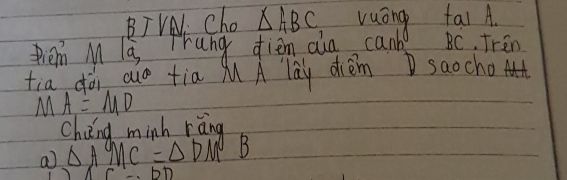 BTVN: Cho ΔABC vuông tại A.
Điểm M là trung điểm của cạnh BC. Trên
tia đối của tia MA lấy điểm D sao cho
MA = MD
Chứng minh rằng
a) ΔAMC = ΔDMB
AC = BD